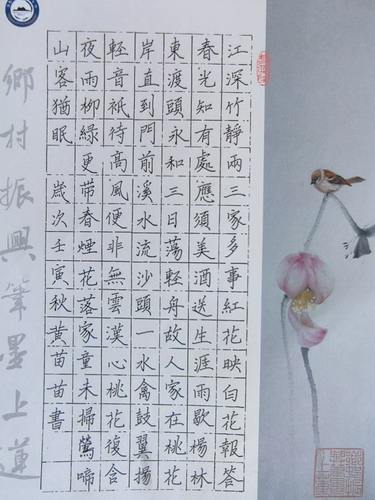 江深竹靜兩三家多事紅花映白花報答
春光知有處應須美酒送生涯雨歇楊林
東渡頭永和三日蕩輕舟故人家在桃花
岸直到門前溪水流沙頭一水禽鼓翼揚
輕音祇待高風便非無雲漢心桃花復含
夜雨柳綠更帶春煙花落家童未掃鶯啼
山客猶眠 歲次壬寅秋黃苗苗書
鄉村振興筆墨上蓮